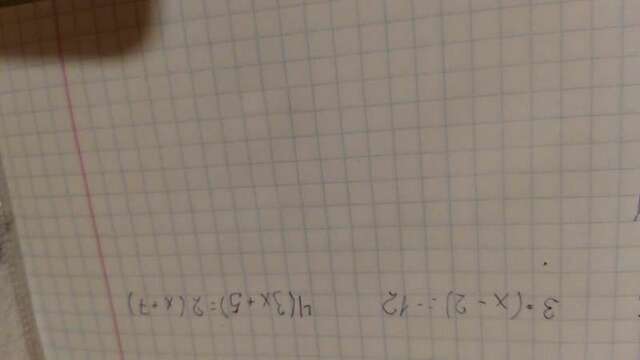 3 · (x - 2) = -12
4(3x+5)=2(x+7)